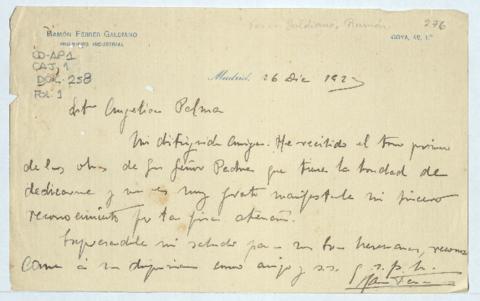 Ferrer Galdiano, Ramón
276
RAMÓN FERRER GALDIANO
INGENIERO INDUSTRIAL
GOYA, 12, 1º
CO-AP1
CAJ. 1
DOC. 258
FOL. 1
Madrid, 26 Dic 192
Srta Angelica Palma
Mi distinguida amiga: He recibido el tomo primero
de las obras de su Señor Padre que tiene la bondad de
dedicarme y me es muy grato manifestarle mi sincero
reconocimiento por tan fina atención.
mi saludo para sus hermanos,
como á su amigo y s.s. q s. p. b.